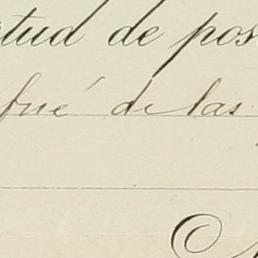 rtud de pos
fué de las